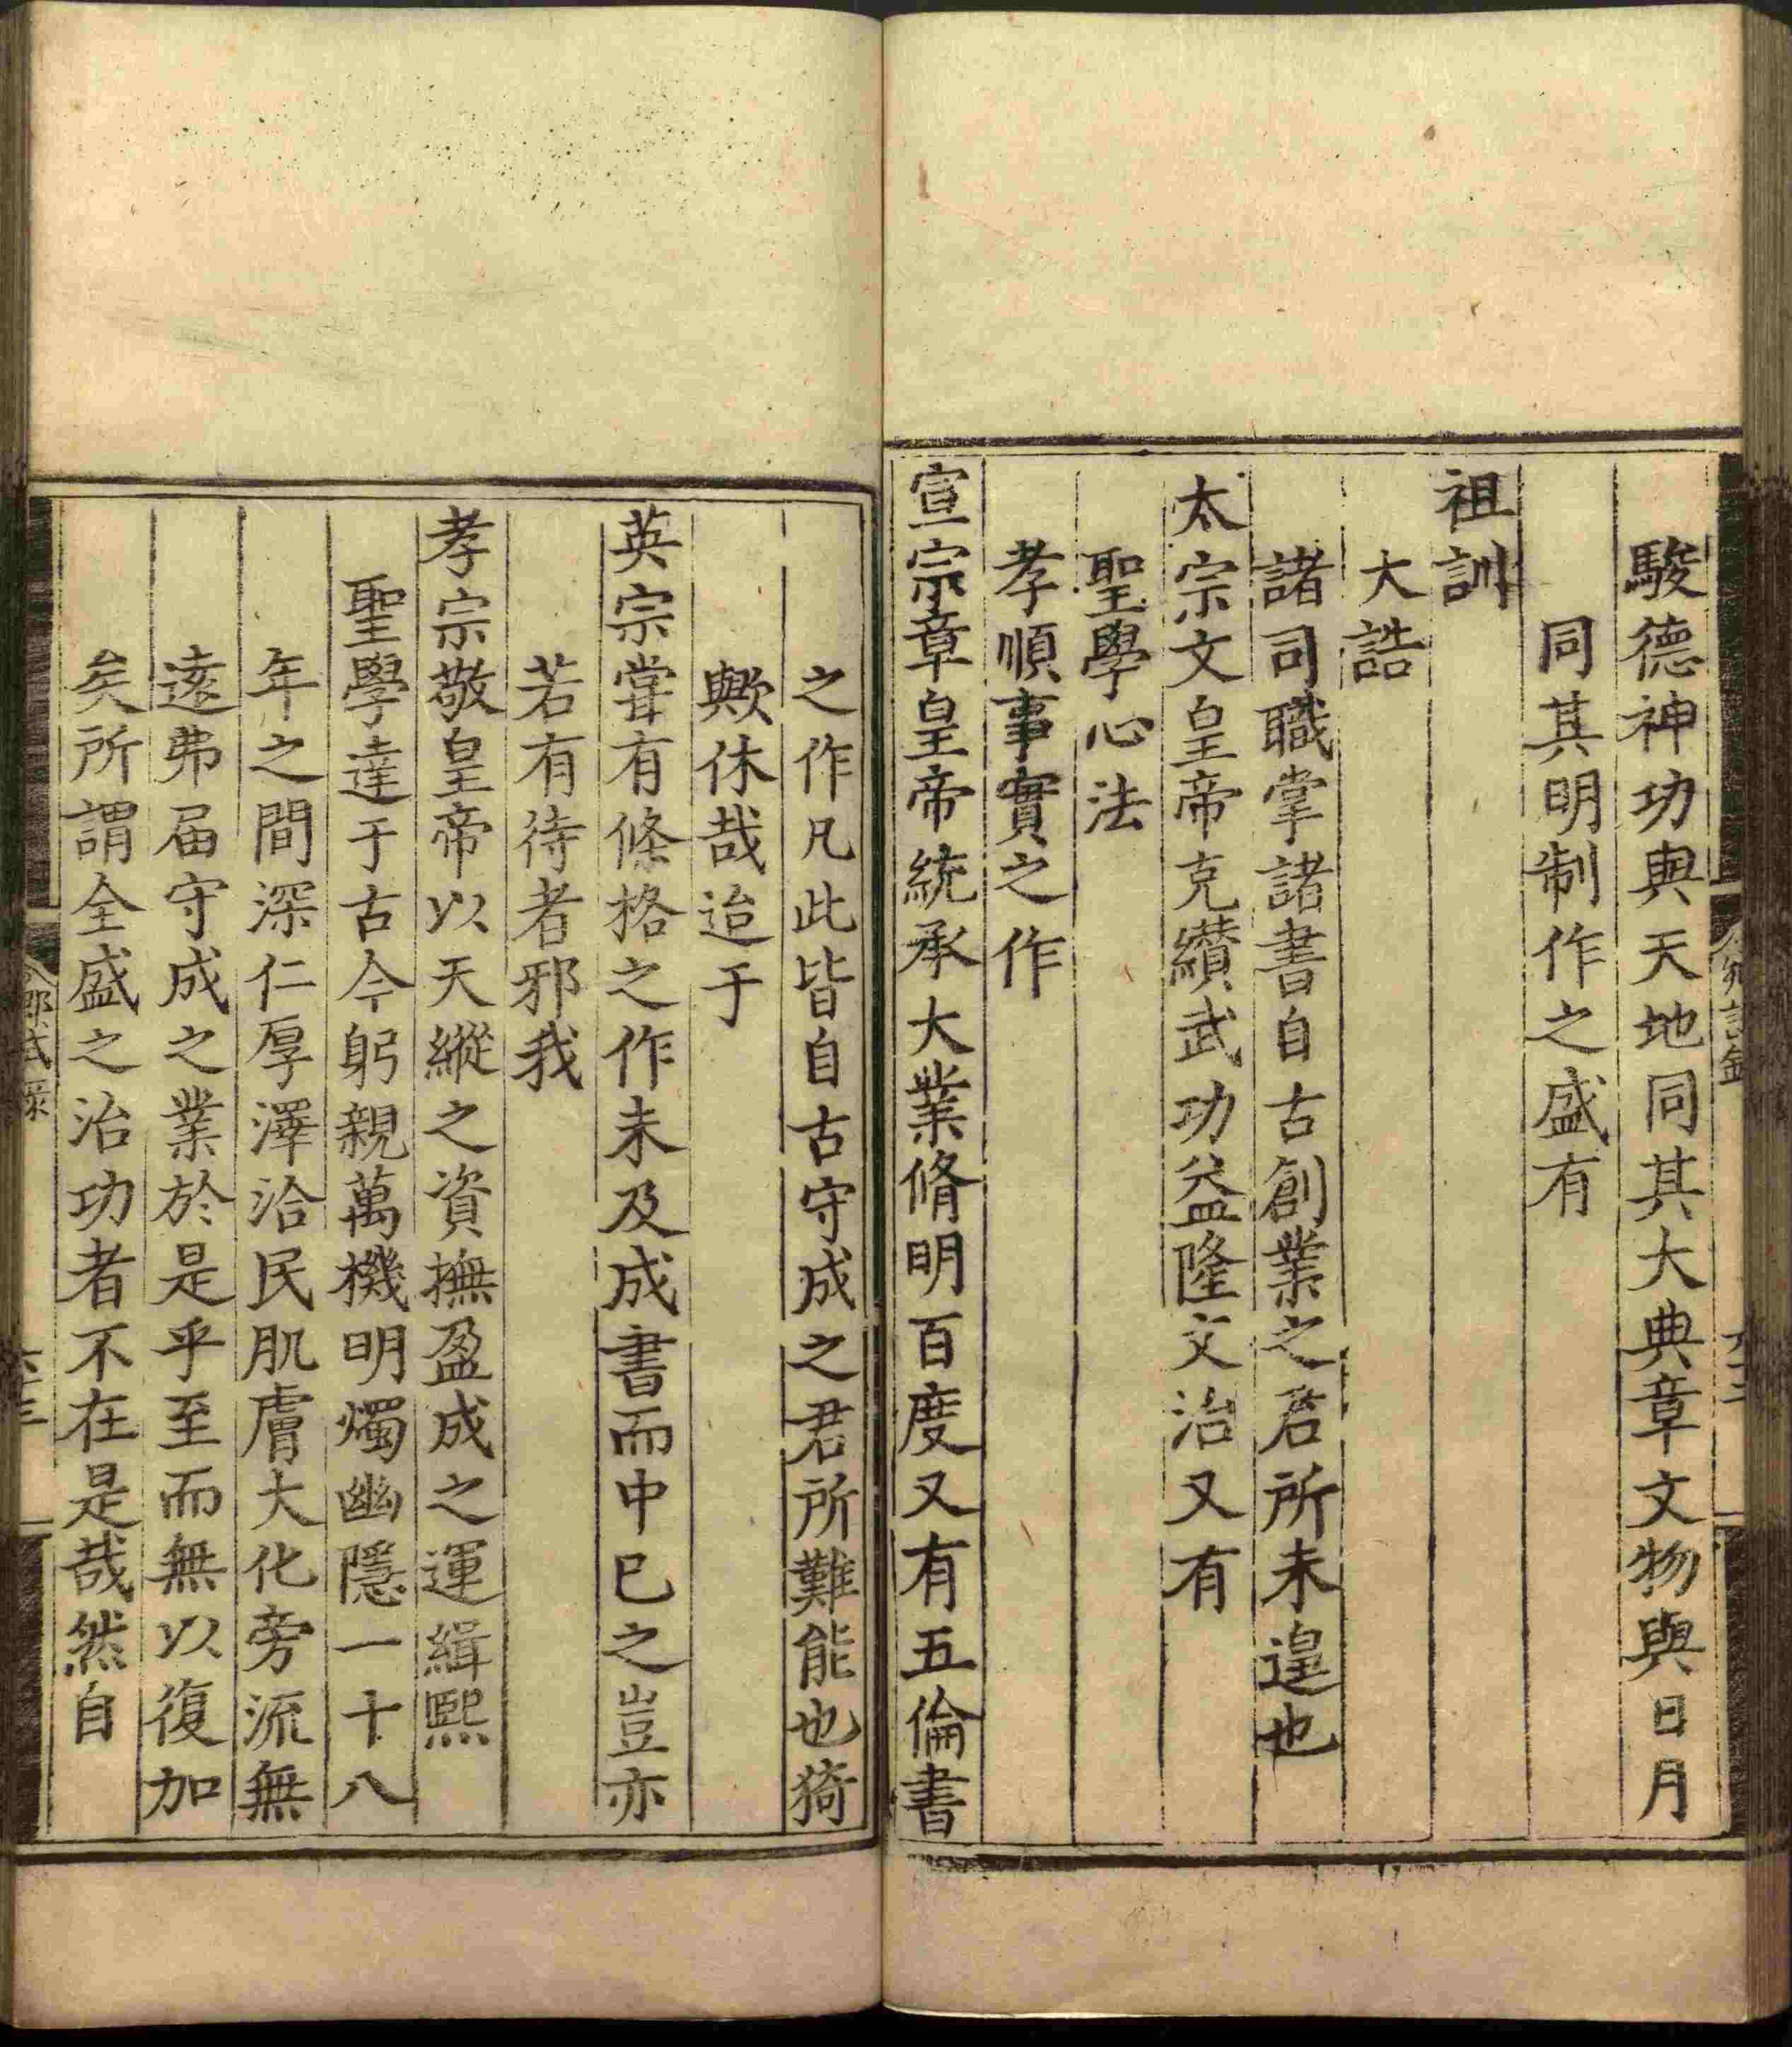 駿德神功與天地同其大典章文物與日月
同其明制作之盛有
祖訓
大誥
諸司職掌諸書自古創業之君所未遑也
太宗文皇帝克纘武功益隆文治又有
聖學心法
孝順事實之作
宣宗章皇帝統承大業脩明百度又有五倫書
之作凡此皆自古守成之君所難能也猗
歟休哉迨于
英宗嘗有條格之作未及成書而中已之豈亦
若有待者邪我
孝宗敬皇帝以天縱之資撫盈成之運緝熙
聖學達于古今躬親萬機明燭幽隱一十八
年之間深仁厚澤洽民肌膚大化旁流無
遠弗届守成之業於是乎至而無以復加
矣所謂全盛之治功者不在是哉然自